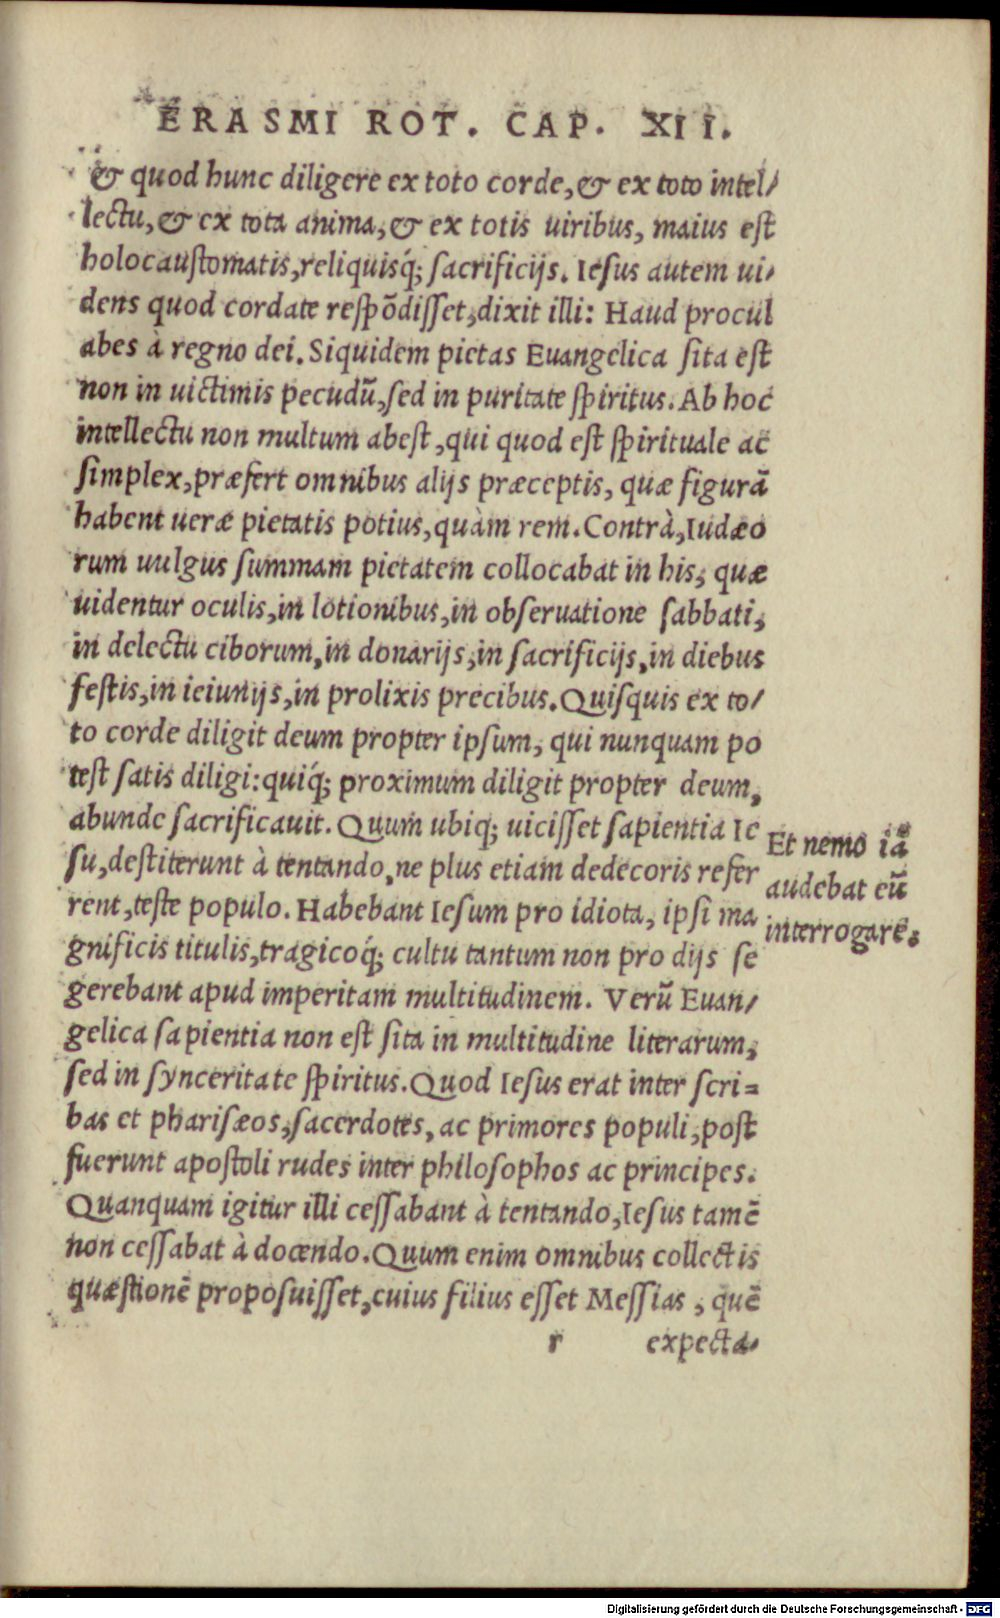 ERASMI ROT. CAP. XII.
& quod hunc diligere ex toto corde, & ex toto intel/
lectu, & ex tota anima, & ex totis uiribus, maius est
holocaustomatis, reliquisq́; sacrificijs. Iesus autem ui/
dens quod cordate respōdisset, dixit illi: Haud procul
abes à regno dei. Siquidem pietas Euangelica sita est
non in uictimis pecudū, sed in puritate spiritus. Ab hoc
intellectu non multum abest, qui quod est spirituale ac
simplex, præfert omnibus alijs præceptis, quæ figurā
habent ueræ pietatis potius, quàm rem. Contrà, Iudæo
rum uulgus summam pietatem collocabat in his, quæ
uidentur oculis, in lotionibus, in obseruatione sabbati,
in delectu ciborum, in donarijs, in sacrificijs, in diebus
festis, in ieiunijs, in prolixis precibus. Quisquis ex to/
to corde diligit deum propter ipsum, qui nunquam po
test satis diligi: quiq́; proximum diligit propter deum,
abunde sacrificauit. Quum ubiq; uicisset sapientia Ie
su, destiterunt à tentando, ne plus etiam dedecoris refer
rent, teste populo. Habebant Iesum pro idiota, ipsi ma
gnificis titulis, tragicoq́; cultu tantum non pro dijs se
gerebant apud imperitam multitudinem. Verū Euan/
gelica sapientia non est sita in multitudine literarum,
sed in synceritate spiritus. Quod Iesus erat inter scri=
bas et pharisæos, sacerdotes, ac primores populi, post
fuerunt apostoli rudes inter philosophos ac principes.
Quanquam igitur illi cessabant à tentando, Iesus tamē
non cessabat à docendo. Quum enim omnibus collectis
quæstionē proposuisset, cuius filius esset Messias, quē
r expecta/
Et nemo iā
audebat eū
interrogare.
Digitalisierung gefördert durch die Deutsche Forschungsgemeinschaft - DFG